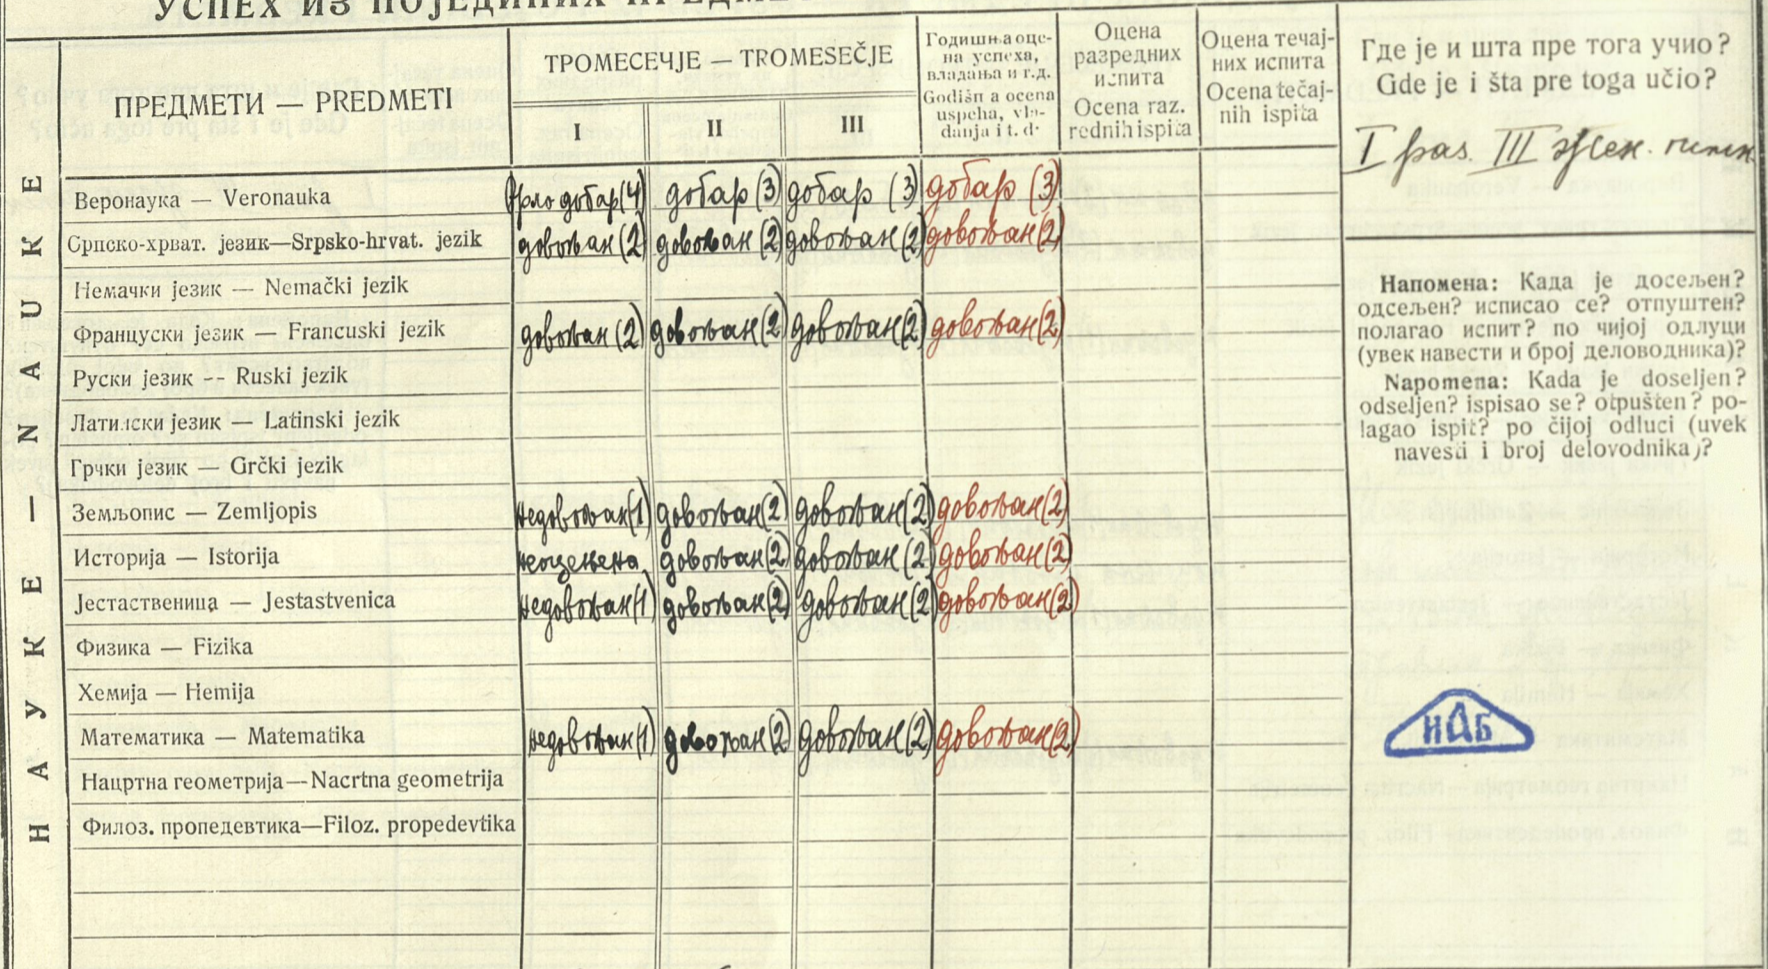 УСПЕХ ИЗ ПОЈЕДИНИХ
ПРЕДМЕТИ — PREDMETI
ТРОМЕСЕЧЈЕ — TROMESEČJE
I II III
Годишња оце-
на успеха,
владања и т.д.
Godišn a ocena
uspeha, vla-
danja i t. d.
Оцена
разредних
испита
Ocena raz.
rednih ispita
Оцена течај-
них испита
Ocena tečaj-
nih ispita
Где је и шта пре тога учио?
Gde je i šta pre toga učio?
I раз. III жен. гимн.
НАУКЕ — NAUKE
Веронаука — Veronauka врло добар (4) добар (3) добар (3) добар (3)
Српско-хрват. језик—Srpsko-hrvat. jezik довољан (2) довољан (2) довољан (2) довољан (2)
Немачки језик — Nemački jezik
Француски језик — Francuski jezik довољан (2) довољан (2) довољан (2) довољан (2)
Руски језик -- Ruski jezik
Латински језик — Latinski jezik
Грчки језик — Grčki jezik
Земљопис — Zemljopis недовољан (1) довољан (2) довољан (2) довољан (2)
Историја — Istorija неоцењена довољан (2) довољан (2) довољан (2)
Јестаственица — Jestastvenica недовољан (1) довољан (2) довољан (2) довољан (2)
Физика — Fizika
Хемија — Hemija
Математика — Matematika недовољан (1) довољан (2) довољан (2) довољан (2)
Нацртна геометрија — Nacrtna geometrija
Филоз. пропедевтика—Filoz. propedevtika
Напомена: Када је досељен?
одсељен? исписао се? отпуштен?
полагао испит? по чијој одлуци
(увек навести и број деловодника)?
Napomena: Kada je doseljen?
odseljen? ispisao se? otpušten? po-
lagao ispit? po čijoj odluci (uvek
navesti i broj delovodnika)?
ИАБ